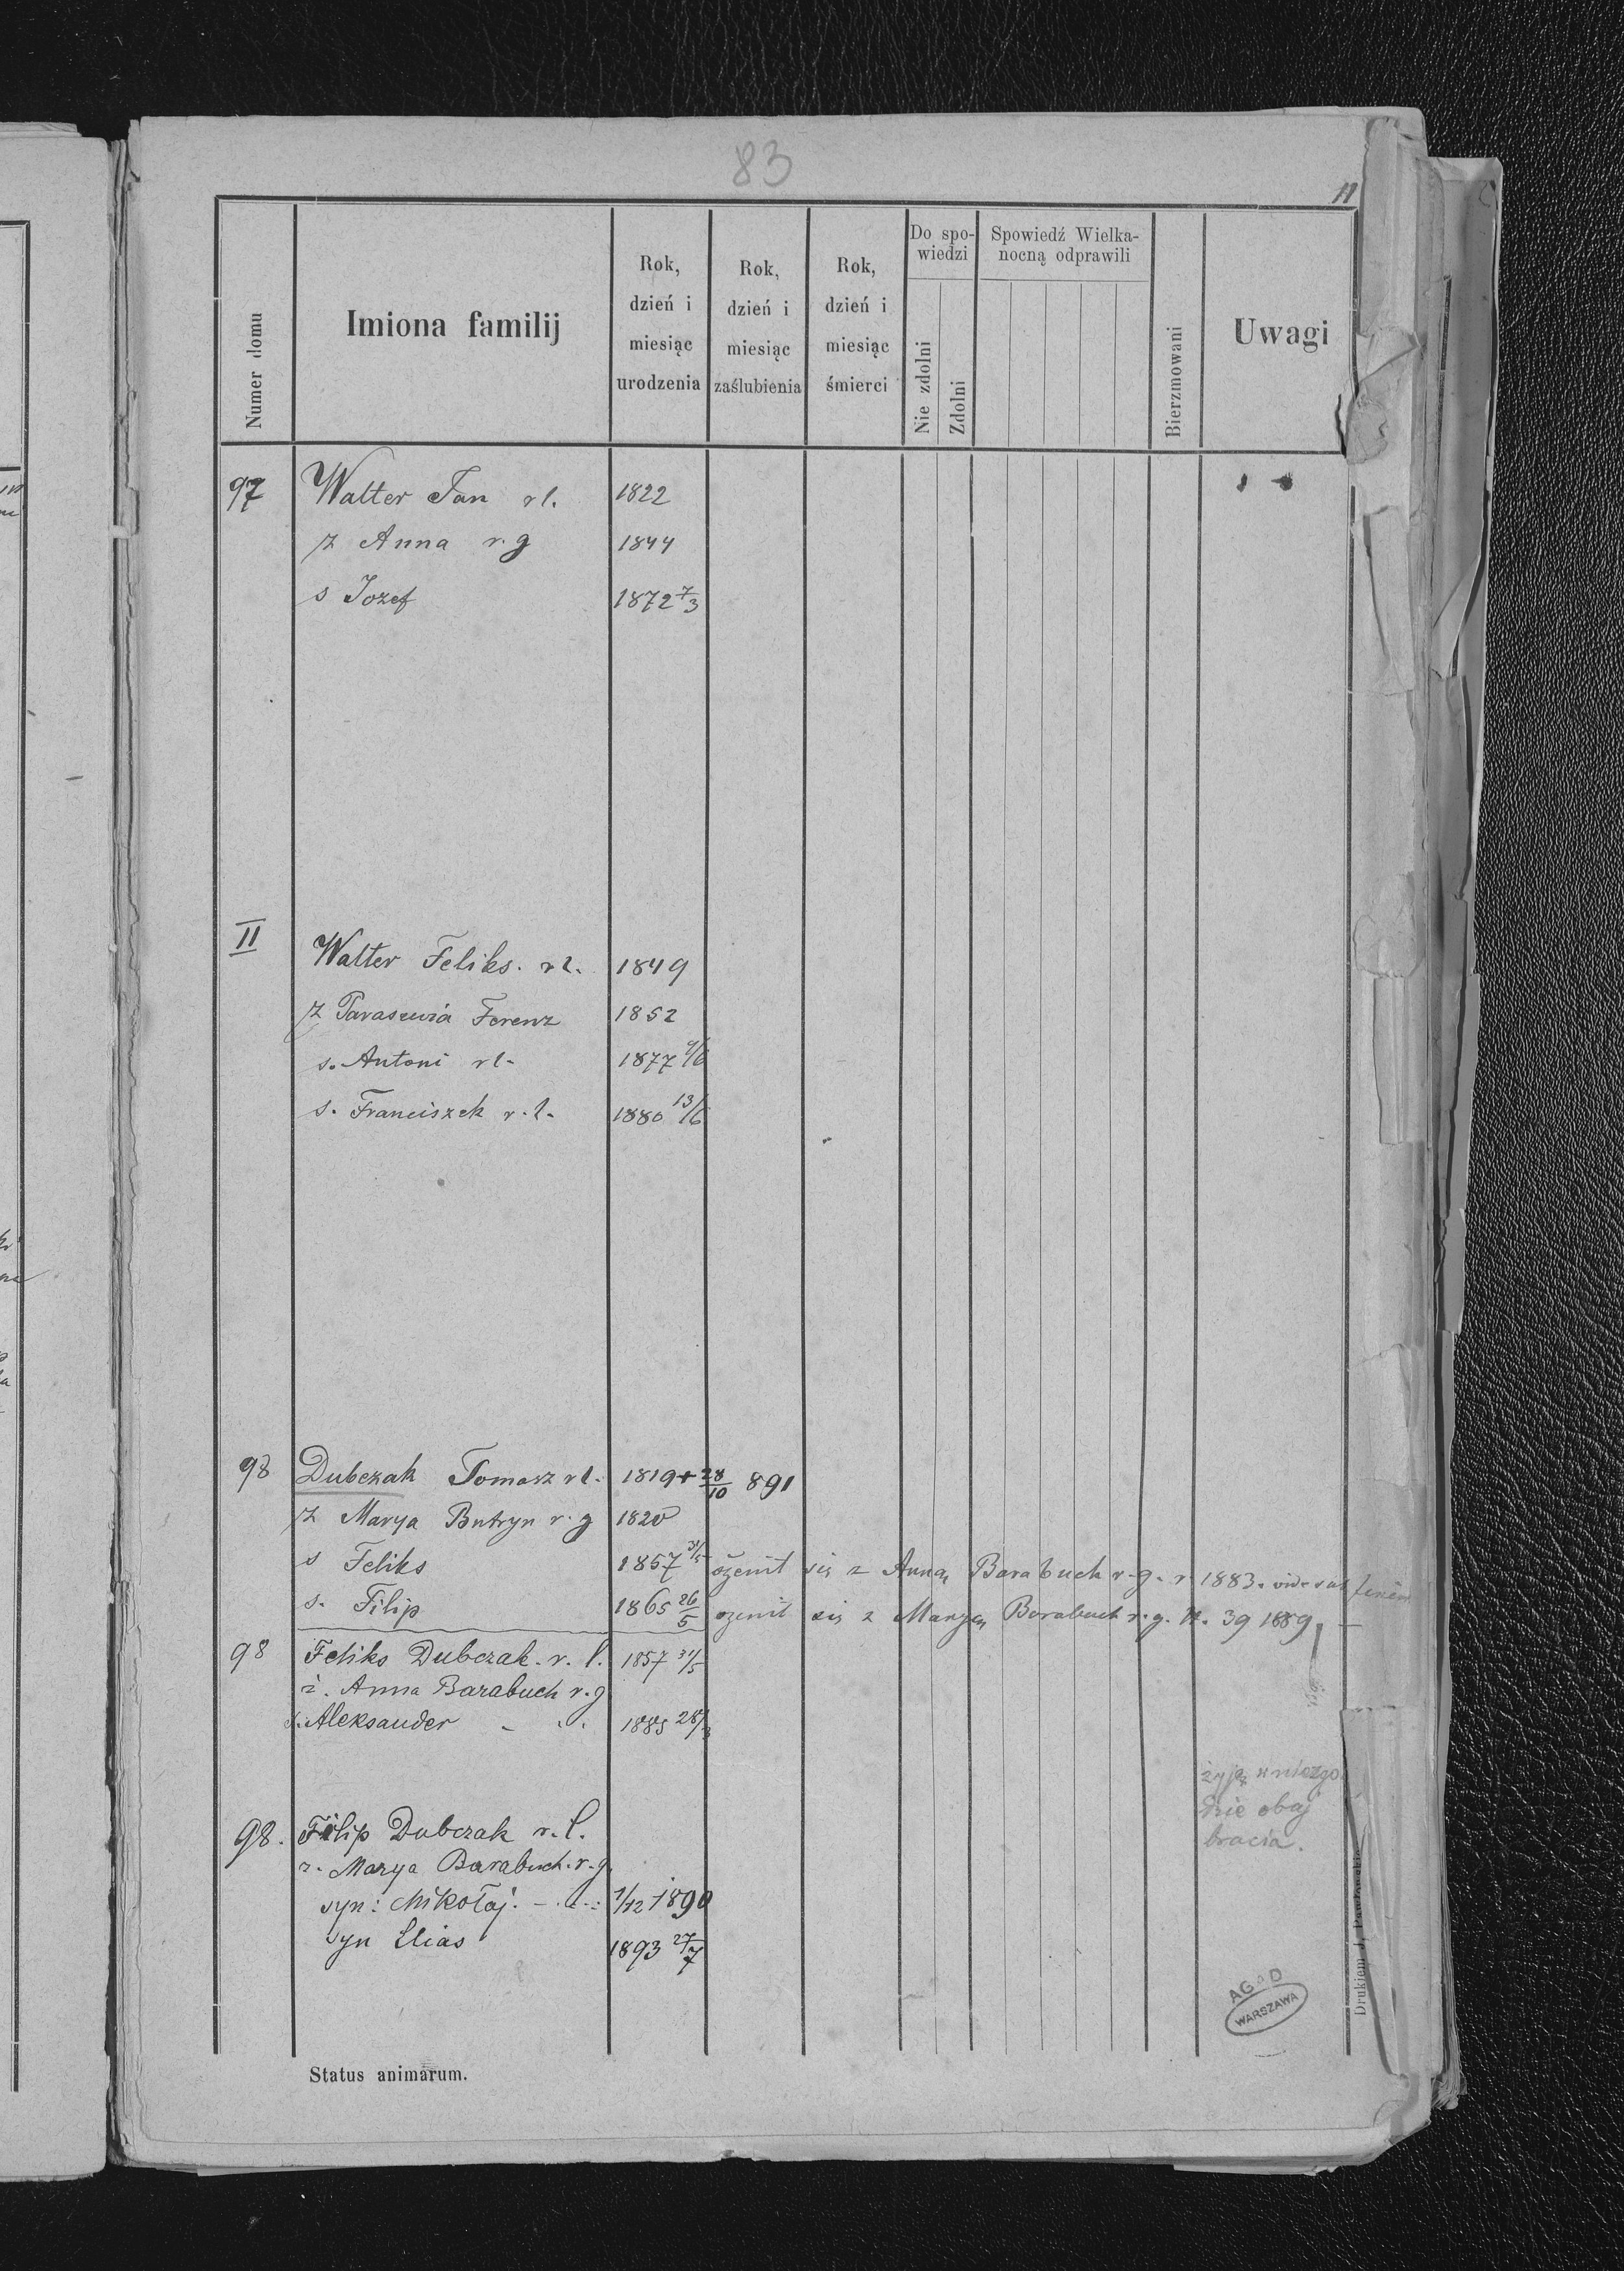 83
11
Numer domu
Imiona familij
Rok, dzień i miesiąc urodzenia
Rok, dzień i miesiąc zaślubienia
Rok, dzień i miesiąc śmierci
Do spo-
wiedzi
Nie zdolni
Zdolni
Spowiedź Wielka-
nocną odprawili
Bierzmowani
Uwagi
97 Walter Jan rl. 1822
ż Anna r.g 1844
s Jozef 1872 7/3
II Walter Feliks. rl. 1849
ż Paraszewia Ferenz 1852
s. Antoni rl. 1877 /6
s. Franciszek r.l. 1880 13/6
98 Dubczak Tomasz rl. 1819 + 28/10 891
ż Marya Butryn r.g 1820
s Feliks 1857 31/5 ożenił się z Anną Barabuch r.g. r 1883.
s. Filip 1865 26/5 ożenił się z Maryą Barabuch r.g. N. 39 1889
98 Feliks Dubczak. r. l. 1857 31/5
ż. Anna Barabuch r.g
s. Aleksander 1885 28/3
żyją w niezgo
dzie obaj
bracia.
98. Filip Dubczak r.l.
ż. Marya Barabuch. r.g.
syn: Mikołaj. 1/12 1890
syn Elias 1893 27/7
AGAD
WARSZAWA
Drukiem J. Pawłowskie
Status animarum.